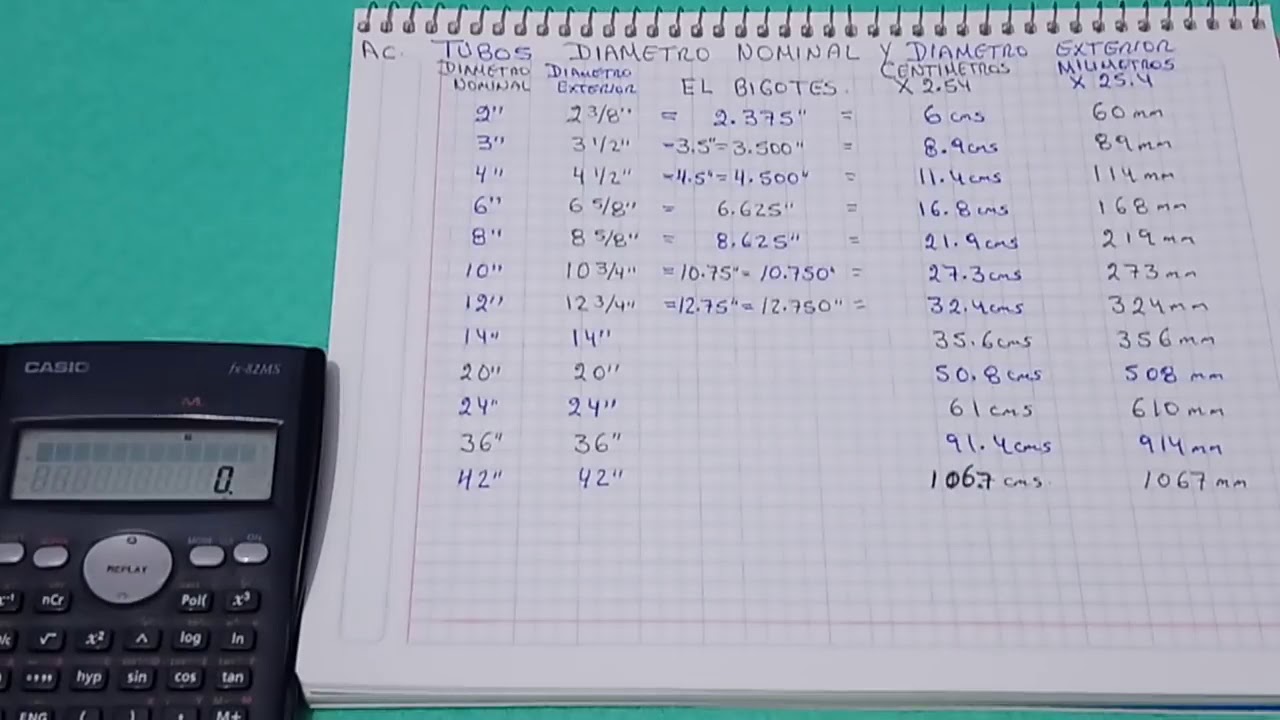 AC. TUBOS DIAMETRO NOMINAL Y DIAMETRO EXTERIOR
DIAMETRO NOMINAL DIAMETRO EXTERIOR EL BIGOTES. CENTIMETROS X 2.54 MILIMETROS X 25.4
2" 2 3/8" = 2.375" = 6 cms 60 mm
3" 3 1/2" =3.5"= 3.500" = 8.9 cms 89 mm
4" 4 1/2" =4.5"= 4.500" = 11.4 cms 114 mm
6" 6 5/8" = 6.625" = 16.8 cms 168 mm
8" 8 5/8" = 8.625" = 21.9 cms 219 mm
10" 10 3/4" =10.75"= 10.750" = 27.3 cms 273 mm
12" 12 3/4" =12.75"= 12.750" = 32.4 cms 324 mm
14" 14" 35.6 cms 356 mm
20" 20" 50.8 cms 508 mm
24" 24" 61 cms 610 mm
36" 36" 91.4 cms 914 mm
42" 42" 106.7 cms. 1067 mm
CASIO fx-82MS
M
0.
REPLAY
MODE ON
nCr Pol( x³
√ x² ^ log ln
hyp sin cos tan
ENG ( ) , M+